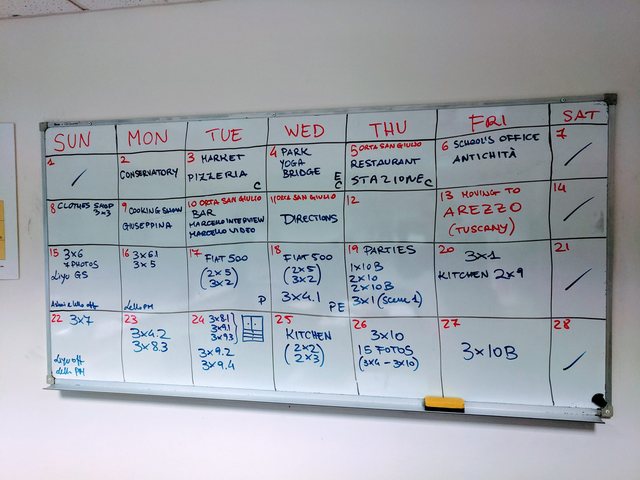 SUN MON TUE WED THU FRI SAT
1
2
CONSERVATORY
3 MARKET
PIZZERIA
C
4 PARK
YOGA
BRIDGE
E
C
5 ORTA SAN GIULIO
RESTAURANT
STAZIONE C
6 SCHOOL'S OFFICE
ANTICHITÀ
7
8 CLOTHES SHOP
3x3
9 COOKING SHOW
GIUSEPPINA
10 ORTA SAN GIULIO
BAR
MARCELLO INTERVIEW
MARCELLO VIDEO
11 ORTA SAN GIULIO
DIRECTIONS
12
13 MOVING TO
AREZZO
(TUSCANY)
14
15 3x6
7 PHOTOS
GS
off
16 3x6.1
3x5
PM
17 FIAT 500
(2x5
3x2)
P
18 FIAT 500
(2x5
3x2)
3x4.1
PE
19 PARTIES
1x10B
2x10
2x10B
3x1 (SCENE 1)
20
3x1
KITCHEN 2x9
21
22 3x7
off
PM
23
3x4.2
3x8.3
24 3x8.1
3x9.1
3x9.3
3x9.2
3x9.4
25
KITCHEN
(2x2
2x3)
26
3x10
15 FOTOS
(3x4 - 3x10)
27
3x10B
28